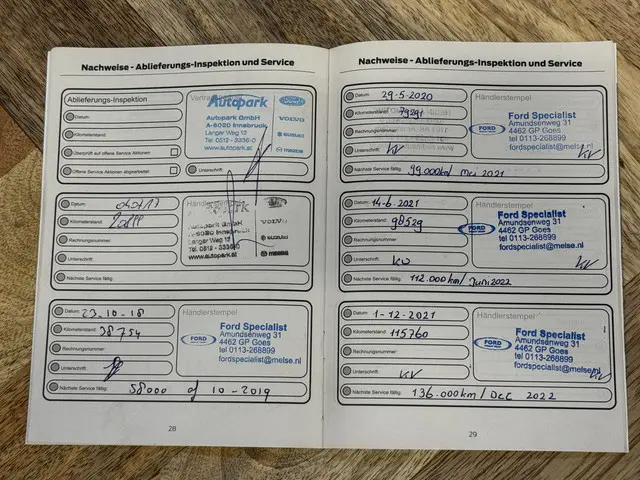 Nachweise - Ablieferungs-Inspektion und Service
Ablieferungs-Inspektion
Datum:
Kilometerstand:
Überprüft auf offene Service Aktionen
Offene Service Aktionen abgearbeitet
Autopark
Autopark GmbH
A-6020 Innsbruck
Langer Weg 12
Tel. 0512 - 3336-0
www.autopark.at
Ford
VOLVO
SUZUKI
mazda
Unterschrift:
Datum:
Kilometerstand:
Rechnungsnummer:
Unterschrift:
Nächste Service fällig:
Autopark GmbH
A-6020 Innsbruck
Langer Weg 12
Tel. 0512 - 3336-0
www.autopark.at
VOLVO
SUZUKI
mazda
Datum: 23-10-18
Kilometerstand: 38754
Rechnungsnummer:
Unterschrift:
Händlerstempel
Ford
Ford Specialist
Amundsenweg 31
4462 GP Goes
tel 0113-268899
fordspecialist@melse.nl
Nächste Service fällig: 58000 of 10-2019
28
Nachweise - Ablieferungs-Inspektion und Service
Datum: 29-5-2020
Kilometerstand:
Rechnungsnummer:
Unterschrift: KV
Händlerstempel
Ford
Ford Specialist
Amundsenweg 31
4462 GP Goes
tel 0113-268899
KV
Nächste Service fällig: 99.000km/ Mei 2021
Datum: 14-6-2021
Kilometerstand: 98529
Rechnungsnummer:
Unterschrift: KV
Händlerstempel
Ford
Ford Specialist
Amundsenweg 31
4462 GP Goes
tel 0113-268899
fordspecialist@melse.nl
KV
Nächste Service fällig: 112.000 km/ Juni 2022
Datum: 1-12-2021
Kilometerstand: 115760
Rechnungsnummer:
Unterschrift: KV
Händlerstempel
Ford
Ford Specialist
Amundsenweg 31
4462 GP Goes
tel 0113-268899
fordspecialist@melse.nl
KV
Nächste Service fällig: 136.000km/ Dec 2022
29